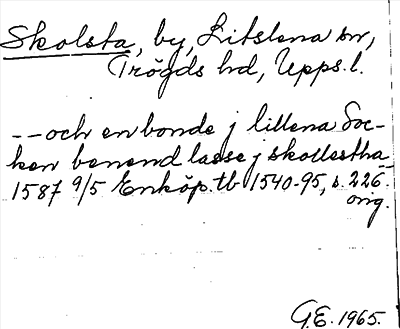 Skolsta, by, Litslena sn,
Trögds hd, Upps. l.
-- och en bonde j lillena Soc-
ken benend lasse j skollestha --
1587 9/5 Enköp. tb 1540-95, s. 226.
orig.
G.E. 1965.